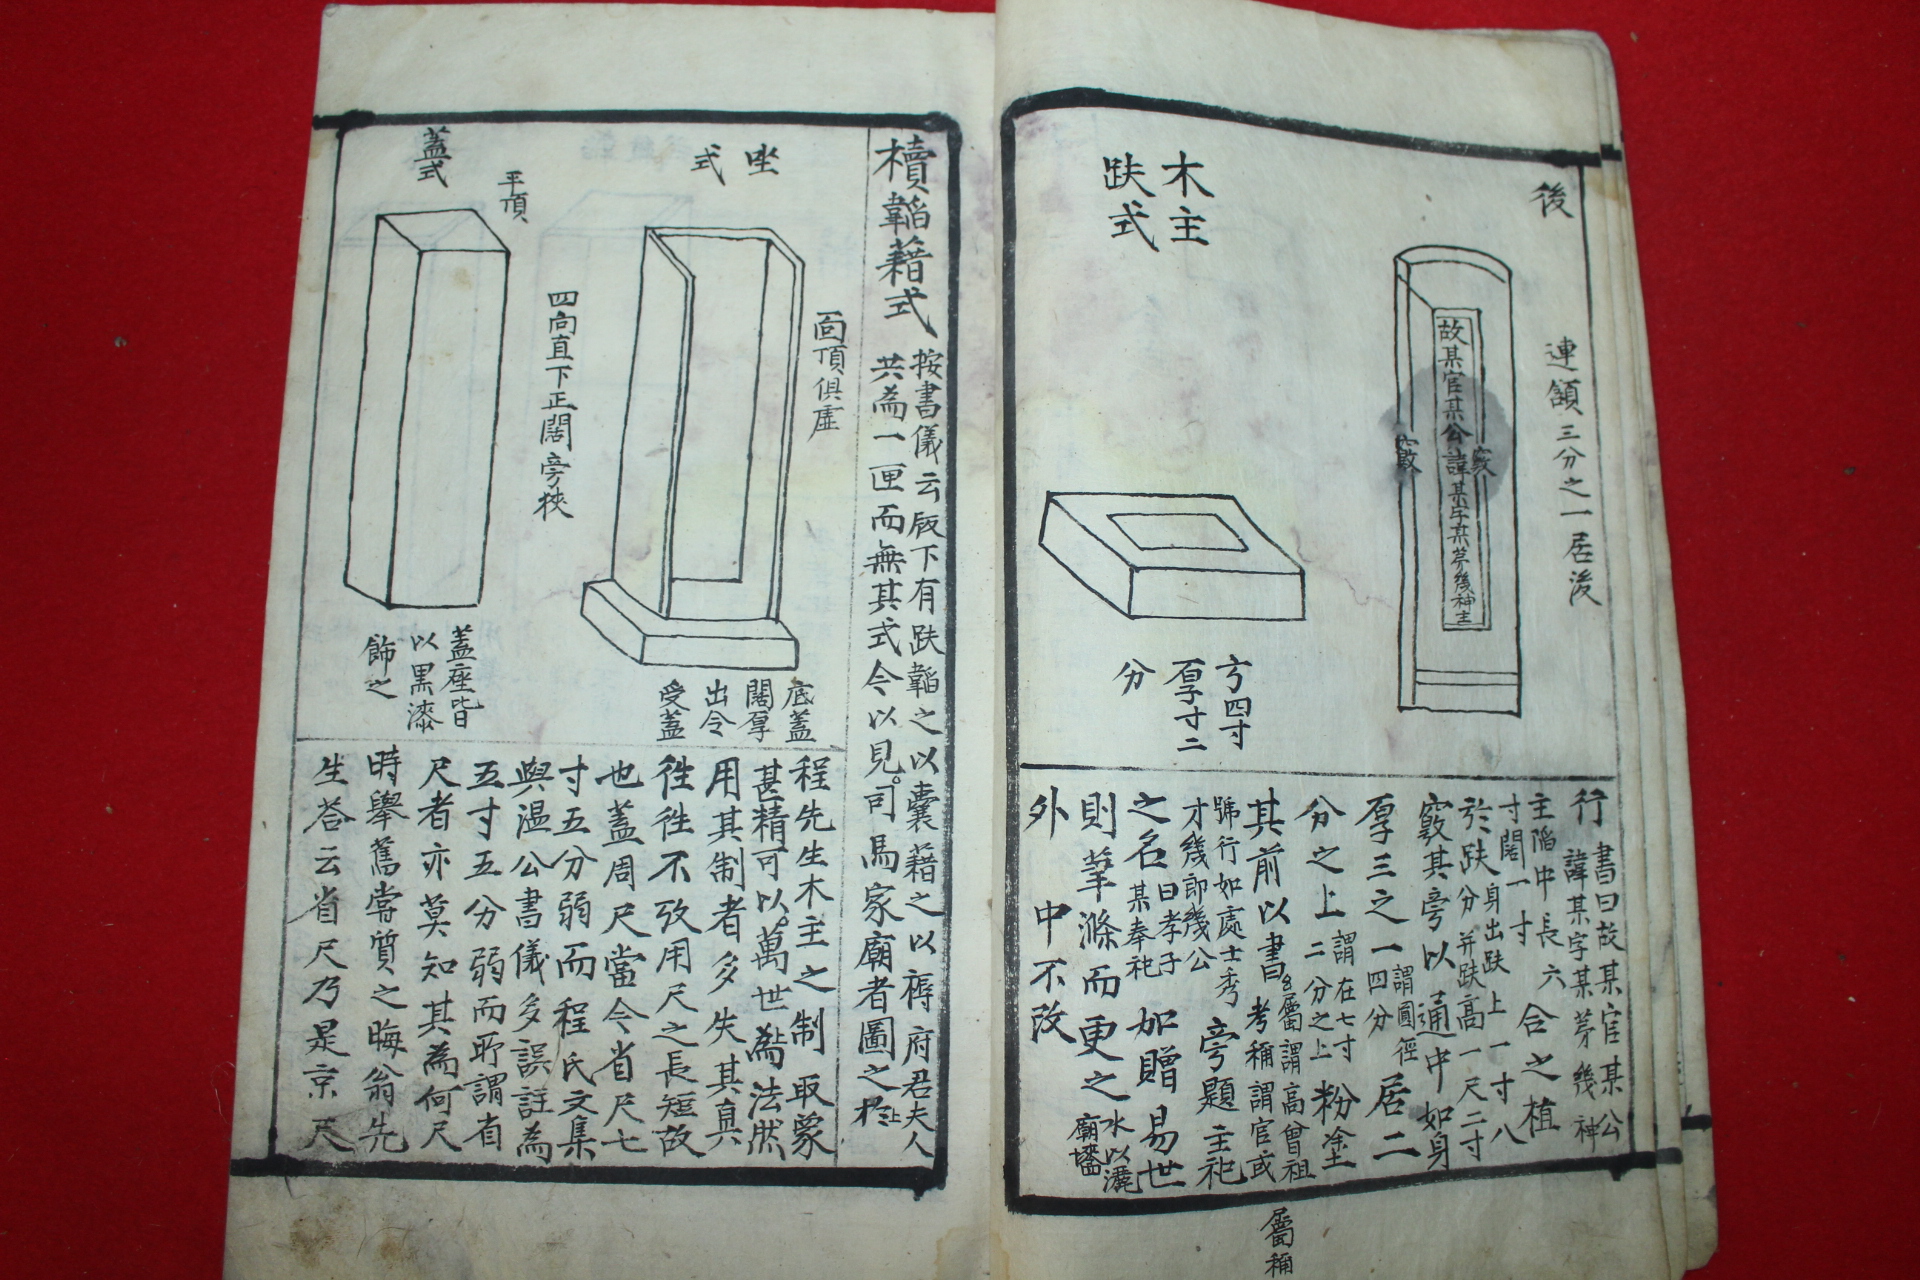 後
連額三分之一居後
故某官某公諱某字某第幾神主
竅
竅
木主
趺式
方四寸
厚寸二
分
行
書曰故某官某公
諱某字某第幾神
主陷中長六
寸闊一寸
合之植
於趺
身出趺上一寸八
分并趺高一尺二寸
竅其旁以通中如身
厚三之一
謂圓徑
四分
居二
分之上
謂在七寸
二分之上
粉塗
其前以書
屬謂高曾祖
考稱謂官或
號行如處士秀
才幾郎幾公
旁題主祀
之名
曰孝子
某奉祀
加贈易世
則筆滌而更之
水以灑
廟墻
外中不改
屬稱
櫝韜藉式
按書儀云版下有趺韜之以囊藉之以褥府君夫人
共為一匣而無其式今以見司馬家廟者圖之於上
坐
式
面頂俱虛
底蓋
闊厚
出令
受蓋
蓋式
平頂
四向直下正闊旁狹
蓋座皆
以黑漆
飾之
程先生木主之制取象
甚精可以萬世為法然
用其制者多失其真
徃徃不攷用尺之長短故
也蓋周尺當今省尺七
寸五分弱而程氏文集
與溫公書儀多誤註為
五寸五分弱而所謂省
尺者亦莫知其為何尺
時舉舊嘗質之晦翁先
生答云省尺乃是京尺